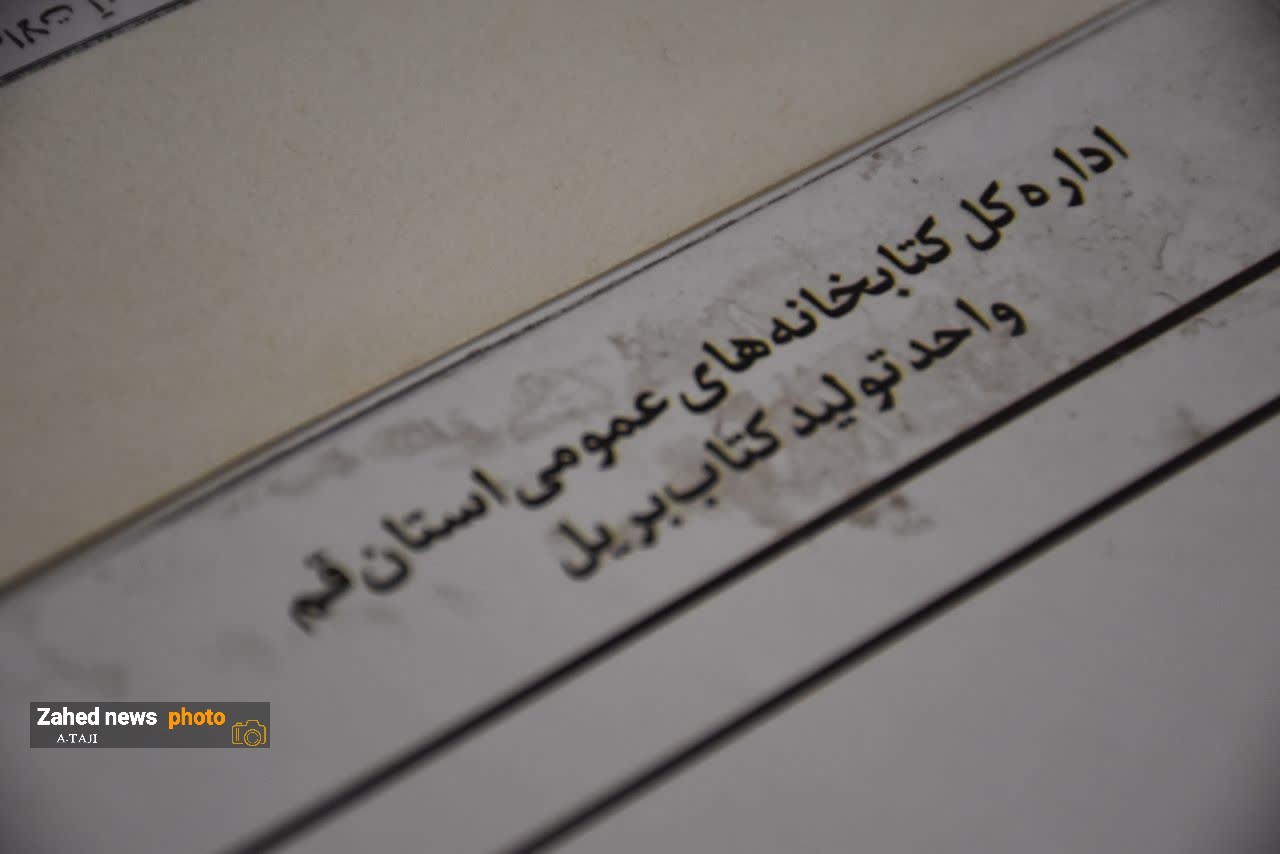 اداره کل کتابخانه‌های عمومی استان قم
واحد تولید کتاب بریل
Zahed news photo
A-TAJI